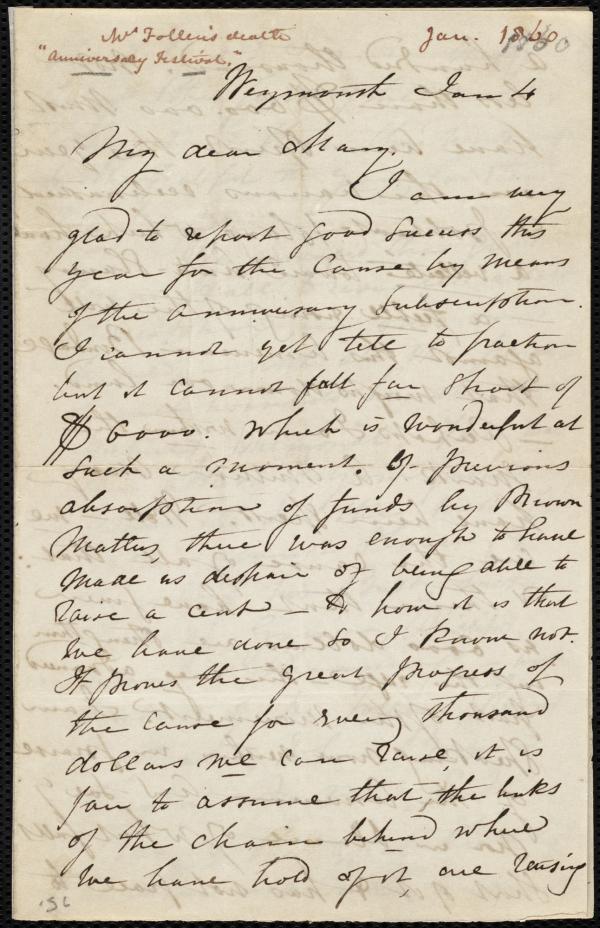 Mrs Follen's death
"Anniversary Festival."
Jan. 1860
Weymouth Jan 4
My dear Mary.
I am very
glad to report good success this
year for the Cause by means
of the Anniversary Subscription.
I cannot yet tell to fraction
but it cannot fall far short of
$6000. Which is wonderful at
such a moment. Of previous
absorption of funds by Brown
Matters, there was enough to have
made us despair of being able to
raise a cent — & how it is that
we have done so I know not.
It proves the great progress of
the cause for every thousand
dollars we can raise, it is
fair to assume that, the links
of the chain behind where
we have hold of it, are raising